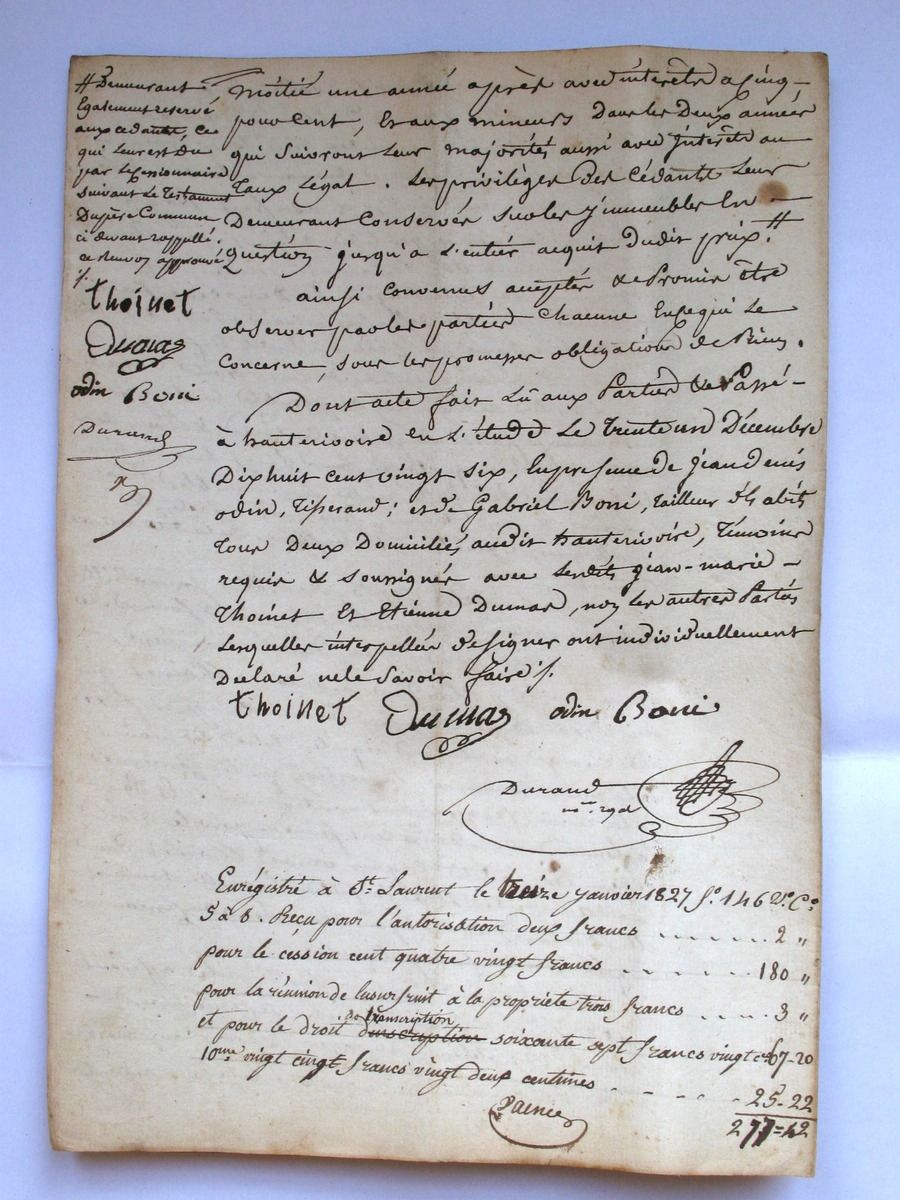 # Demeurant
Egalement reservé
aux cedants, ce
qui leur est du
par le Cessionnaire
suivant le Testament
Dupère Commun
ci devant rappellé.
ce Renvoy approuvé
./.
thoinet
Dumas
odin Boni
Durand
moitié une année après avec intérêts a Cinq
pour Cent, Et aux mineurs Dans les Deux années
qui suivront Leur majorités aussi avec Jntérêts au
Taux Légal. Les privilèges Des Cédants Leur
Demeurant Conservés Sur les jmmeubles En
Question jusqu'a L'entier acquit Dudit prix. #
ainsi Convenus acceptés & Promis être
observer par les parties Chacune En ce qui Le
Concerne, Sous les promesses obligations de Rien.
Dont acte fait Lû aux Parties & Passé
à hauterivoire en L'étude Le trente un Décembre
Dixhuit Cent Vingt Six, En presence de jean denis
odin, Tisserand; et de Gabriel Boni, tailleur d'habits
Tous Deux Domiciliés audit hauterivoire, Témoins
requis & soussignés avec Lesdits jean-marie
Thoinet Et Etienne Dumas, non les autres Parties
Lesquelles interpellées de signer ont individuellement
Déclaré ne le Savoir faire ./.
thoinet Dumas odin Boni
Durand
nore. royal
Enrégistré à St. Laurent le treize janvier 1827 fo. 146 Vo. Co.
5 à 8. Reçu pour l'autorisation deux francs ....... 2 "
pour le cession cent quatre vingt francs ..... 180 "
pour la réunion de lusurfruit à la propriete trois francs .... 3 "
de transcription
et pour le droit dinscryption soixante sept francs vingt ces 67-20
10eme vingt cinq francs vingt deux centimes - - - - - 25-22
277=42